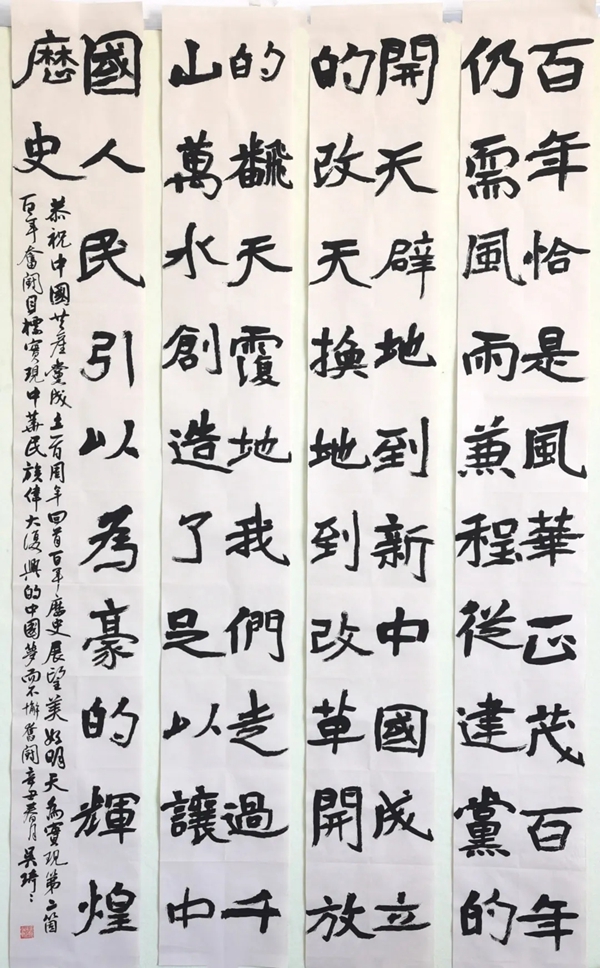 百年恰是風華正茂百年
仍需風雨兼程從建黨的
開天辟地到新中國成立
的改天換地到改革開放
的飜天覆地我們走過千
山萬水創造了足以讓中
國人民引以為豪的輝煌
歷史
恭祝中國共產黨成立一百周年回首百年歷史展望美好明天為實現第二箇
百年奮鬥目標實現中華民族偉大復興的中國夢而不懈奮鬥辛丑春月吳